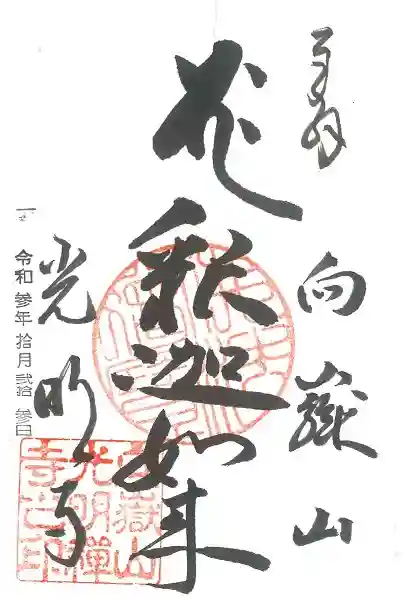 奉拝
向嶽山
釈迦如来
光明寺
令和参年拾月弐拾参日
向嶽山光明禅寺之印